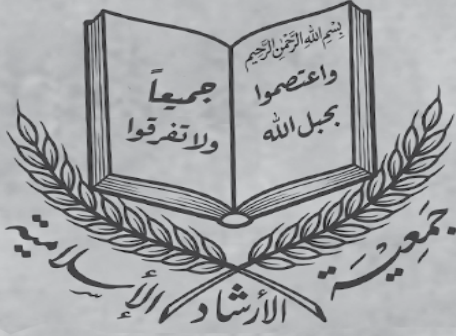 بِسْمِ اللهِ الرَّحْمٰنِ الرَّحِيمِ
واعتصموا
بحبل الله
جميعاً
ولا تفرقوا
جَمْعِيَّة الأرشاد الإسلامية